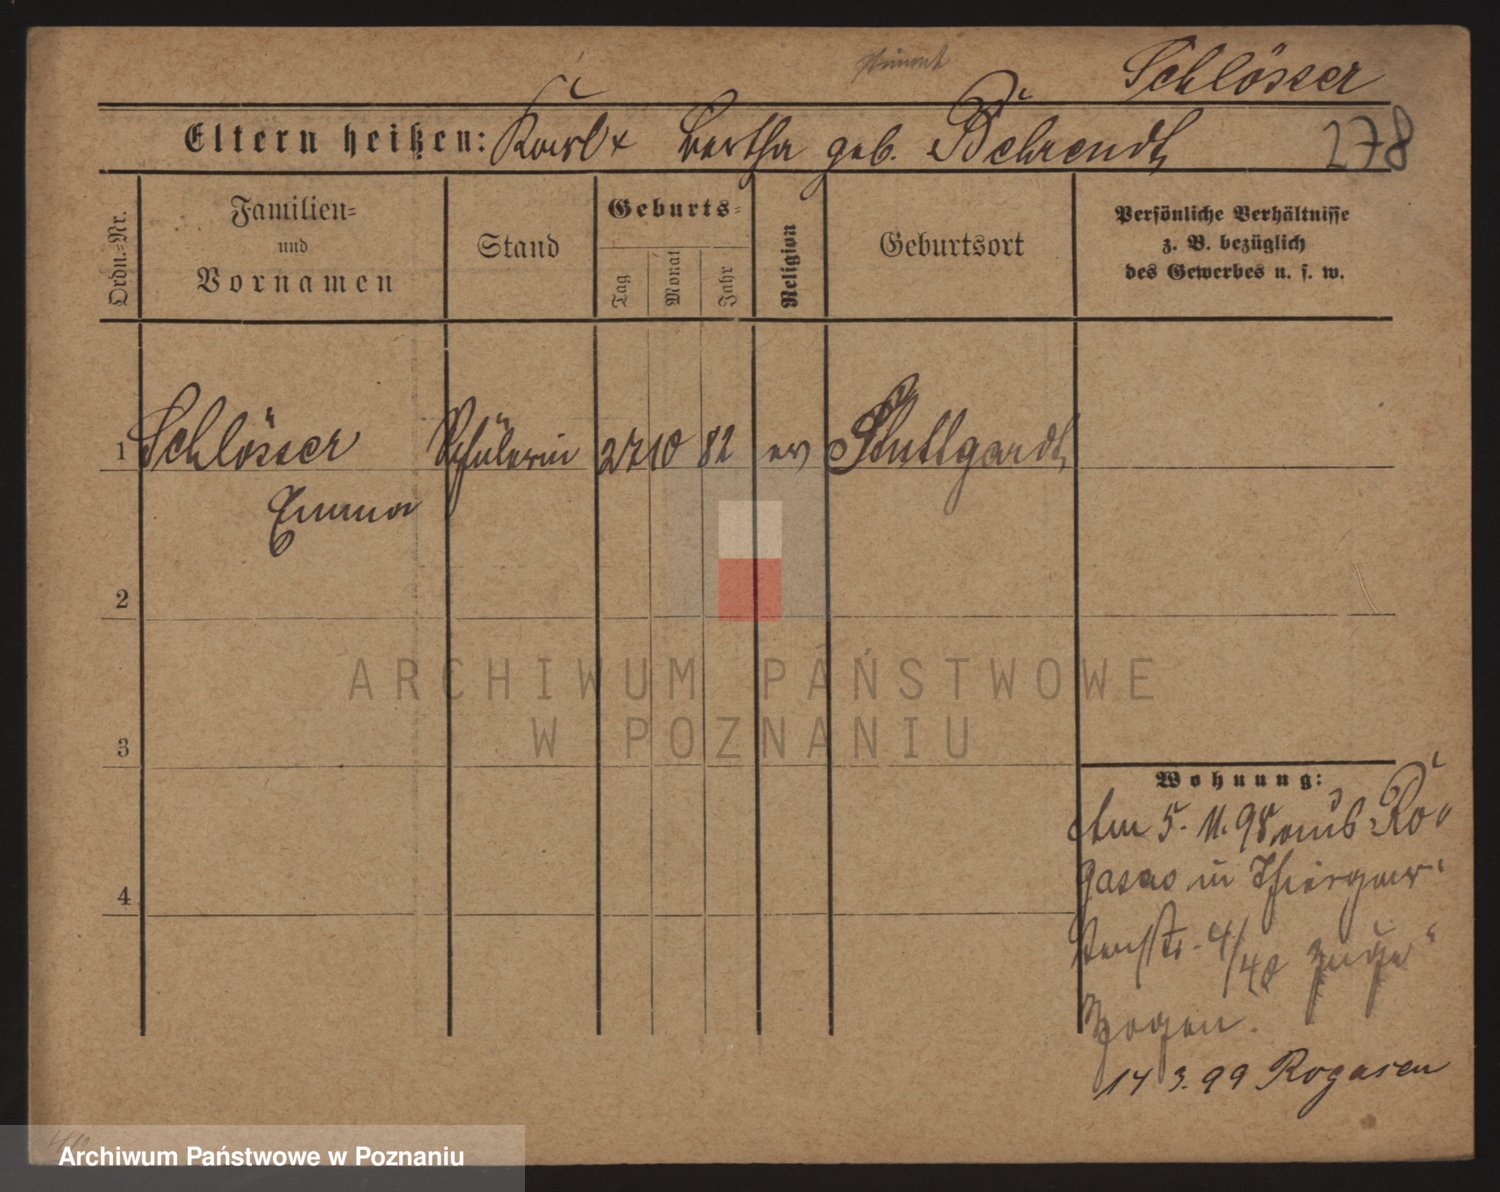 Schlösser
278
Eltern heißen: Karl + Bertha geb. Behrendt
Ordn.=Nr.
Familien=
und
Vornamen
Stand
Geburts=
Tag
Monat
Jahr
Religion
Geburtsort
Persönliche Verhältnisse
z. B. bezüglich
des Gewerbes u. s. w.
1 Schlösser Schülerin 27 10 82 ev Stuttgardt
Emma
2
3
4
Wohnung:
Am 5. 11. 98 aus Ro"
gasen in Thiergar-
tenstr. 4/40 zuge"
zogen.
14 3. 99 Rogasen
ARCHIWUM PAŃSTWOWE
W POZNANIU
Archiwum Państwowe w Poznaniu